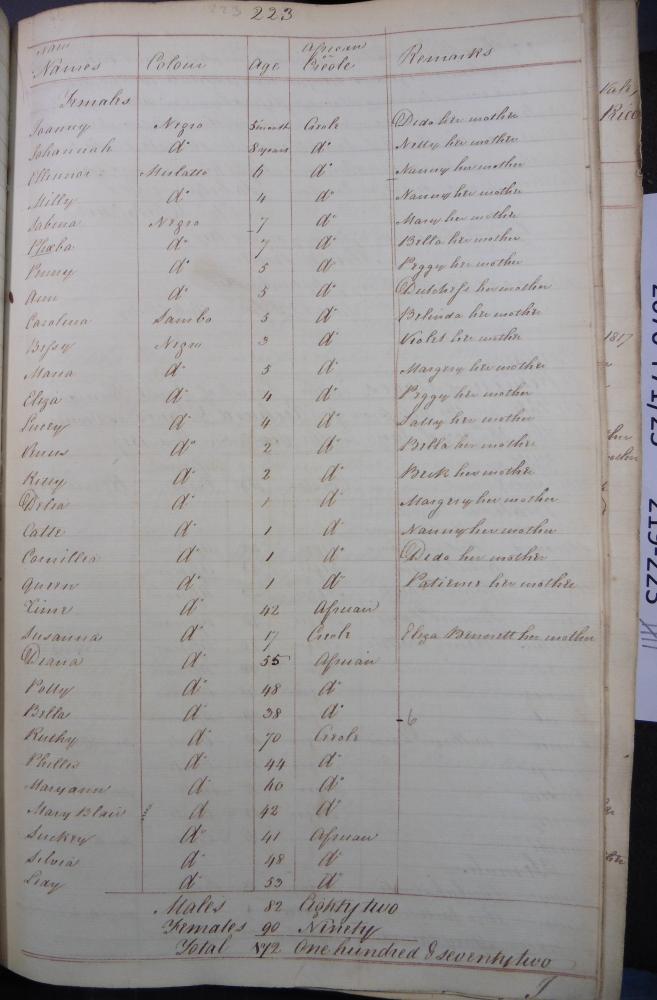 223
Names Colour Age African or Creole Remarks
Females
Joanny Negro 5 month Creole Dido her mother
Johannah do 8 years do Nelly her mother
Elleanor Mulatto 4 do Nanny her mother
Milly do 4 do Nanny her mother
Sabina Negro 7 do Mary her mother
Phœba do 7 do Bella her mother
Penny do 5 do Peggy her mother
Ann do 5 do Dutchess her mother
Carolina Sambo 5 do Belinda her mother
Bessy Negro 3 do Violet her mother
Maria do 5 do Margery her mother
Eliza do 4 do Peggy her mother
Lucy do 4 do Sally her mother
do 2 do Bella her mother
Kitty do 2 do Beck her mother
Delia do 1 do Margery her mother
Catte do 1 do Nanny her mother
Camilla do 1 do Dido her mother
Queen do 1 do Patience her mother
do 42 African
Susanna do 17 Creole Eliza Bennett her mother
Diana do 55 African
Polly do 48 do
Bella do 38 do
Ruthy do 70 Creole
Phillis do 44 do
Maryann do 40 do
Mary Blair do 42 do
Suckey do 41 African
Silvia do 48 do
do 53 do
Males 82 Eighty two
Females 90 & Ninety
Total 172 One hundred & seventy two
1817
219-223